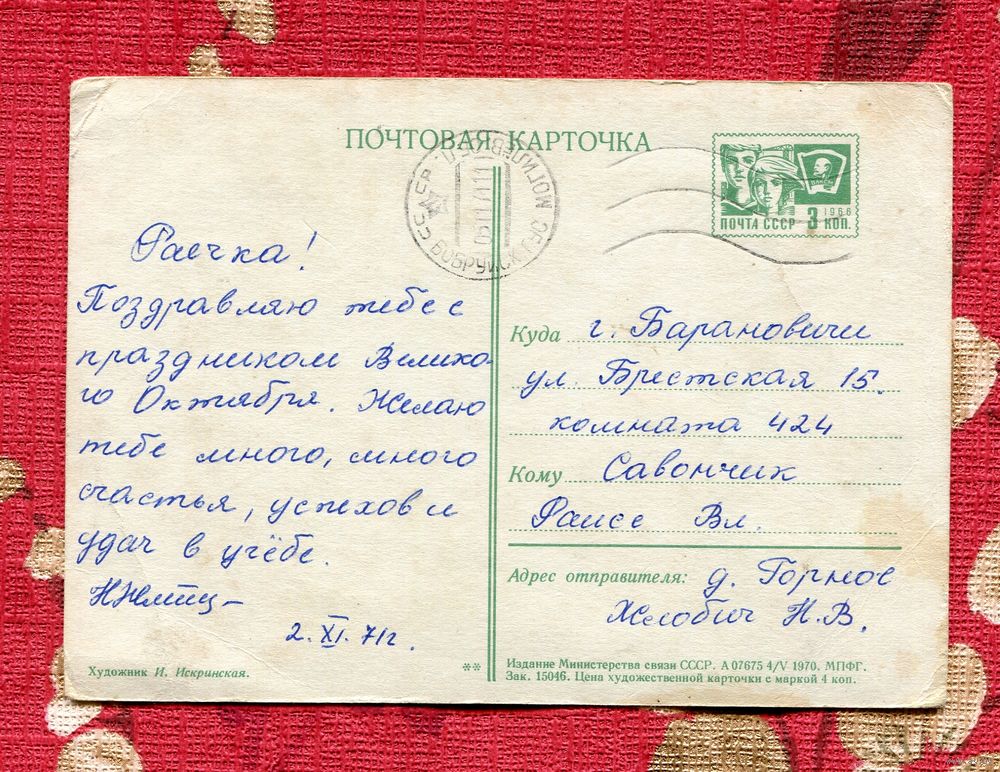 ПОЧТОВАЯ КАРТОЧКА
ВЛКСМ
1966
ПОЧТА СССР 3 КОП.
БОБРУЙСК
Раечка!
Поздравляю тебе с
праздником Велико-
го Октября. Желаю
тебе много, много
счастья, успехов и
удач в учёбе.
2. XI. 71г.
Художник И. Искринская.
**
Куда г. Барановичи
ул. Брестская 15.
комната 424
Кому Савончик
Раисе Вл.
Адрес отправителя: д. Горное
Желобич Н. В.
Издание Министерства связи СССР. А 07675 4/V 1970. МПФГ.
Зак. 15046. Цена художественной карточки с маркой 4 коп.